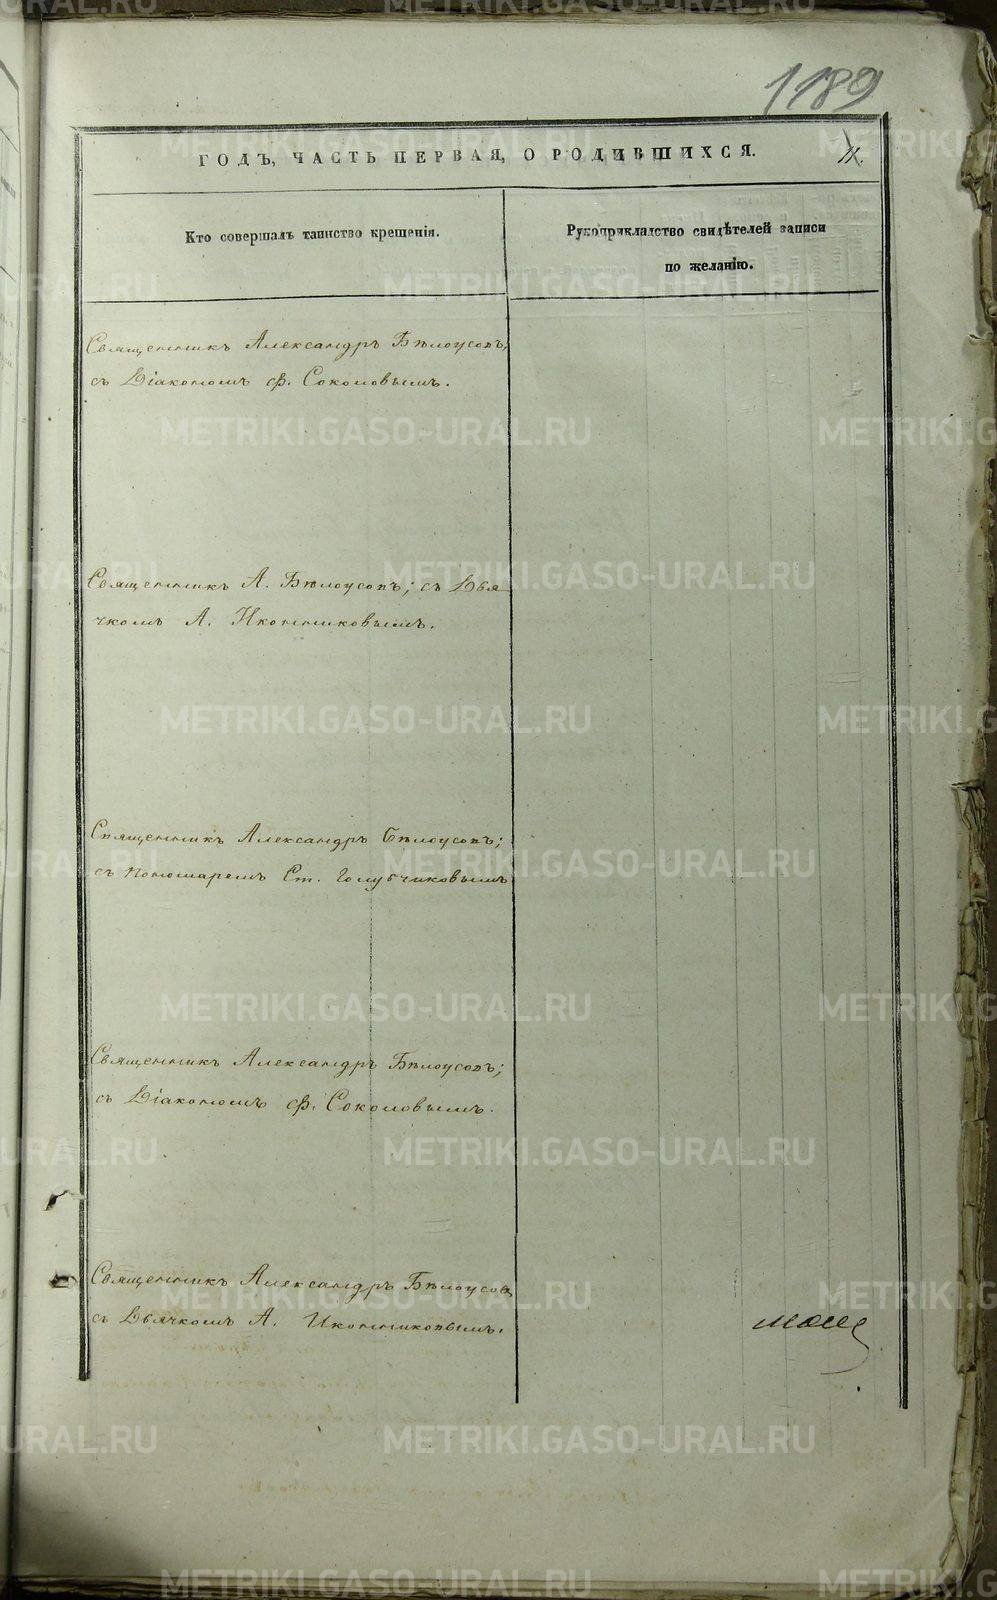 1189
ГОДЪ, ЧАСТЬ ПЕРВАЯ, О РОДИВШИХСЯ.
Кто совершалъ таинство крещенія.
Рукоприкладство свидѣтелей записи
по желанію.
Священникъ Александръ Бѣлоусовъ,
съ Діакономъ Ф. Соколовымъ.
Священникъ А. Бѣлоусовъ; съ Дья
чкомъ А. Иконниковымъ.
Священникъ Александръ Бѣлоусовъ;
съ Пономаремъ Ст. Голубчиковымъ
Священникъ Александръ Бѣлоусовъ;
съ Діакономъ Ф. Соколовымъ.
Священникъ Александръ Бѣлоусовъ
съ Дьячкомъ А. Иконниковымъ.
METRIKI.GASO-URAL.RU